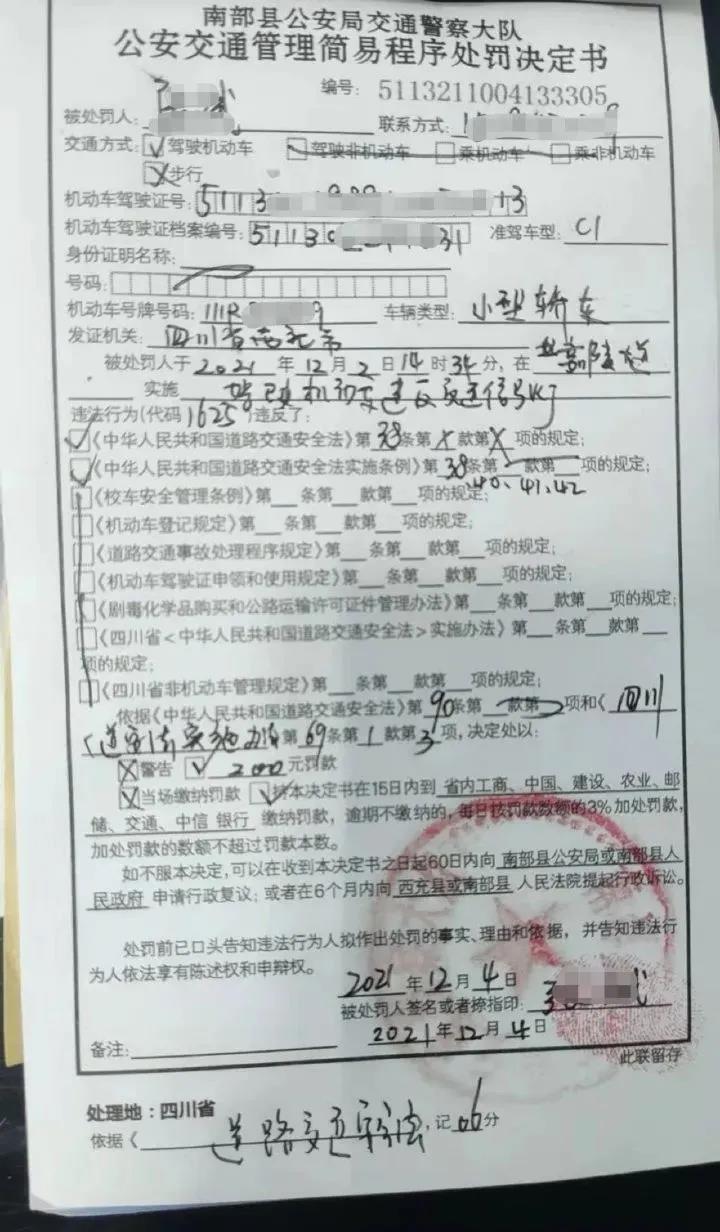 南部县公安局交通警察大队
公安交通管理简易程序处罚决定书
编号: 5113211004133305
被处罚人: 联系方式:
交通方式: 驾驶机动车 驾驶非机动车 乘机动车 乘非机动车
步行
机动车驾驶证号: 5113
机动车驾驶证档案编号: 5113 31 准驾车型: C1
身份证明名称:
号码:
机动车号牌号码: 川R 9 车辆类型: 小型轿车
发证机关: 四川省南充市
被处罚人于 2021 年 12 月 2 日 14 时 34 分, 在 嘉陵
实施 驾驶机动车违反交通信号灯
违法行为(代码 1625 )违反了:
《中华人民共和国道路交通安全法》第 38 条第 款第 项的规定;
《中华人民共和国道路交通安全法实施条例》第 38 条第 款第 项的规定;
40、41、42
《校车安全管理条例》第 条第 款第 项的规定;
《机动车登记规定》第 条第 款第 项的规定;
《道路交通事故处理程序规定》第 条第 款第 项的规定;
《机动车驾驶证申领和使用规定》第 条第 款第 项的规定;
《剧毒化学品购买和公路运输许可证件管理办法》第 条第 款第 项的规定;
《四川省<中华人民共和国道路交通安全法>实施办法》第 条第 款第
项的规定;
《四川省非机动车管理规定》第 条第 款第 项的规定;
依据《中华人民共和国道路交通安全法》第 90 条第 款第 项和《 四川
《道安法实施办法 第 69 条第 1 款第 3 项, 决定处以:
警告 200 元罚款
当场缴纳罚款 持本决定书在15日内到 省内工商、中国、建设、农业、邮
储、交通、中信 银行 缴纳罚款, 逾期不缴纳的, 每日按罚款数额的3%加处罚款,
加处罚款的数额不超过罚款本数。
如不服本决定, 可以在收到本决定书之日起60日内向 南部县公安局或南部县人
民政府 申请行政复议; 或者在6个月内向 西充县或南部县 人民法院提起行政诉讼。
处罚前已口头告知违法行为人拟作出处罚的事实、理由和依据, 并告知违法行
为人依法享有陈述权和申辩权。
2021 年 12 月 4 日
被处罚人签名或者捺指印:
2021 年 12 月 4 日
备注:
此联留存
处理地: 四川省
依据《 道路交通安全法 , 记 06 分